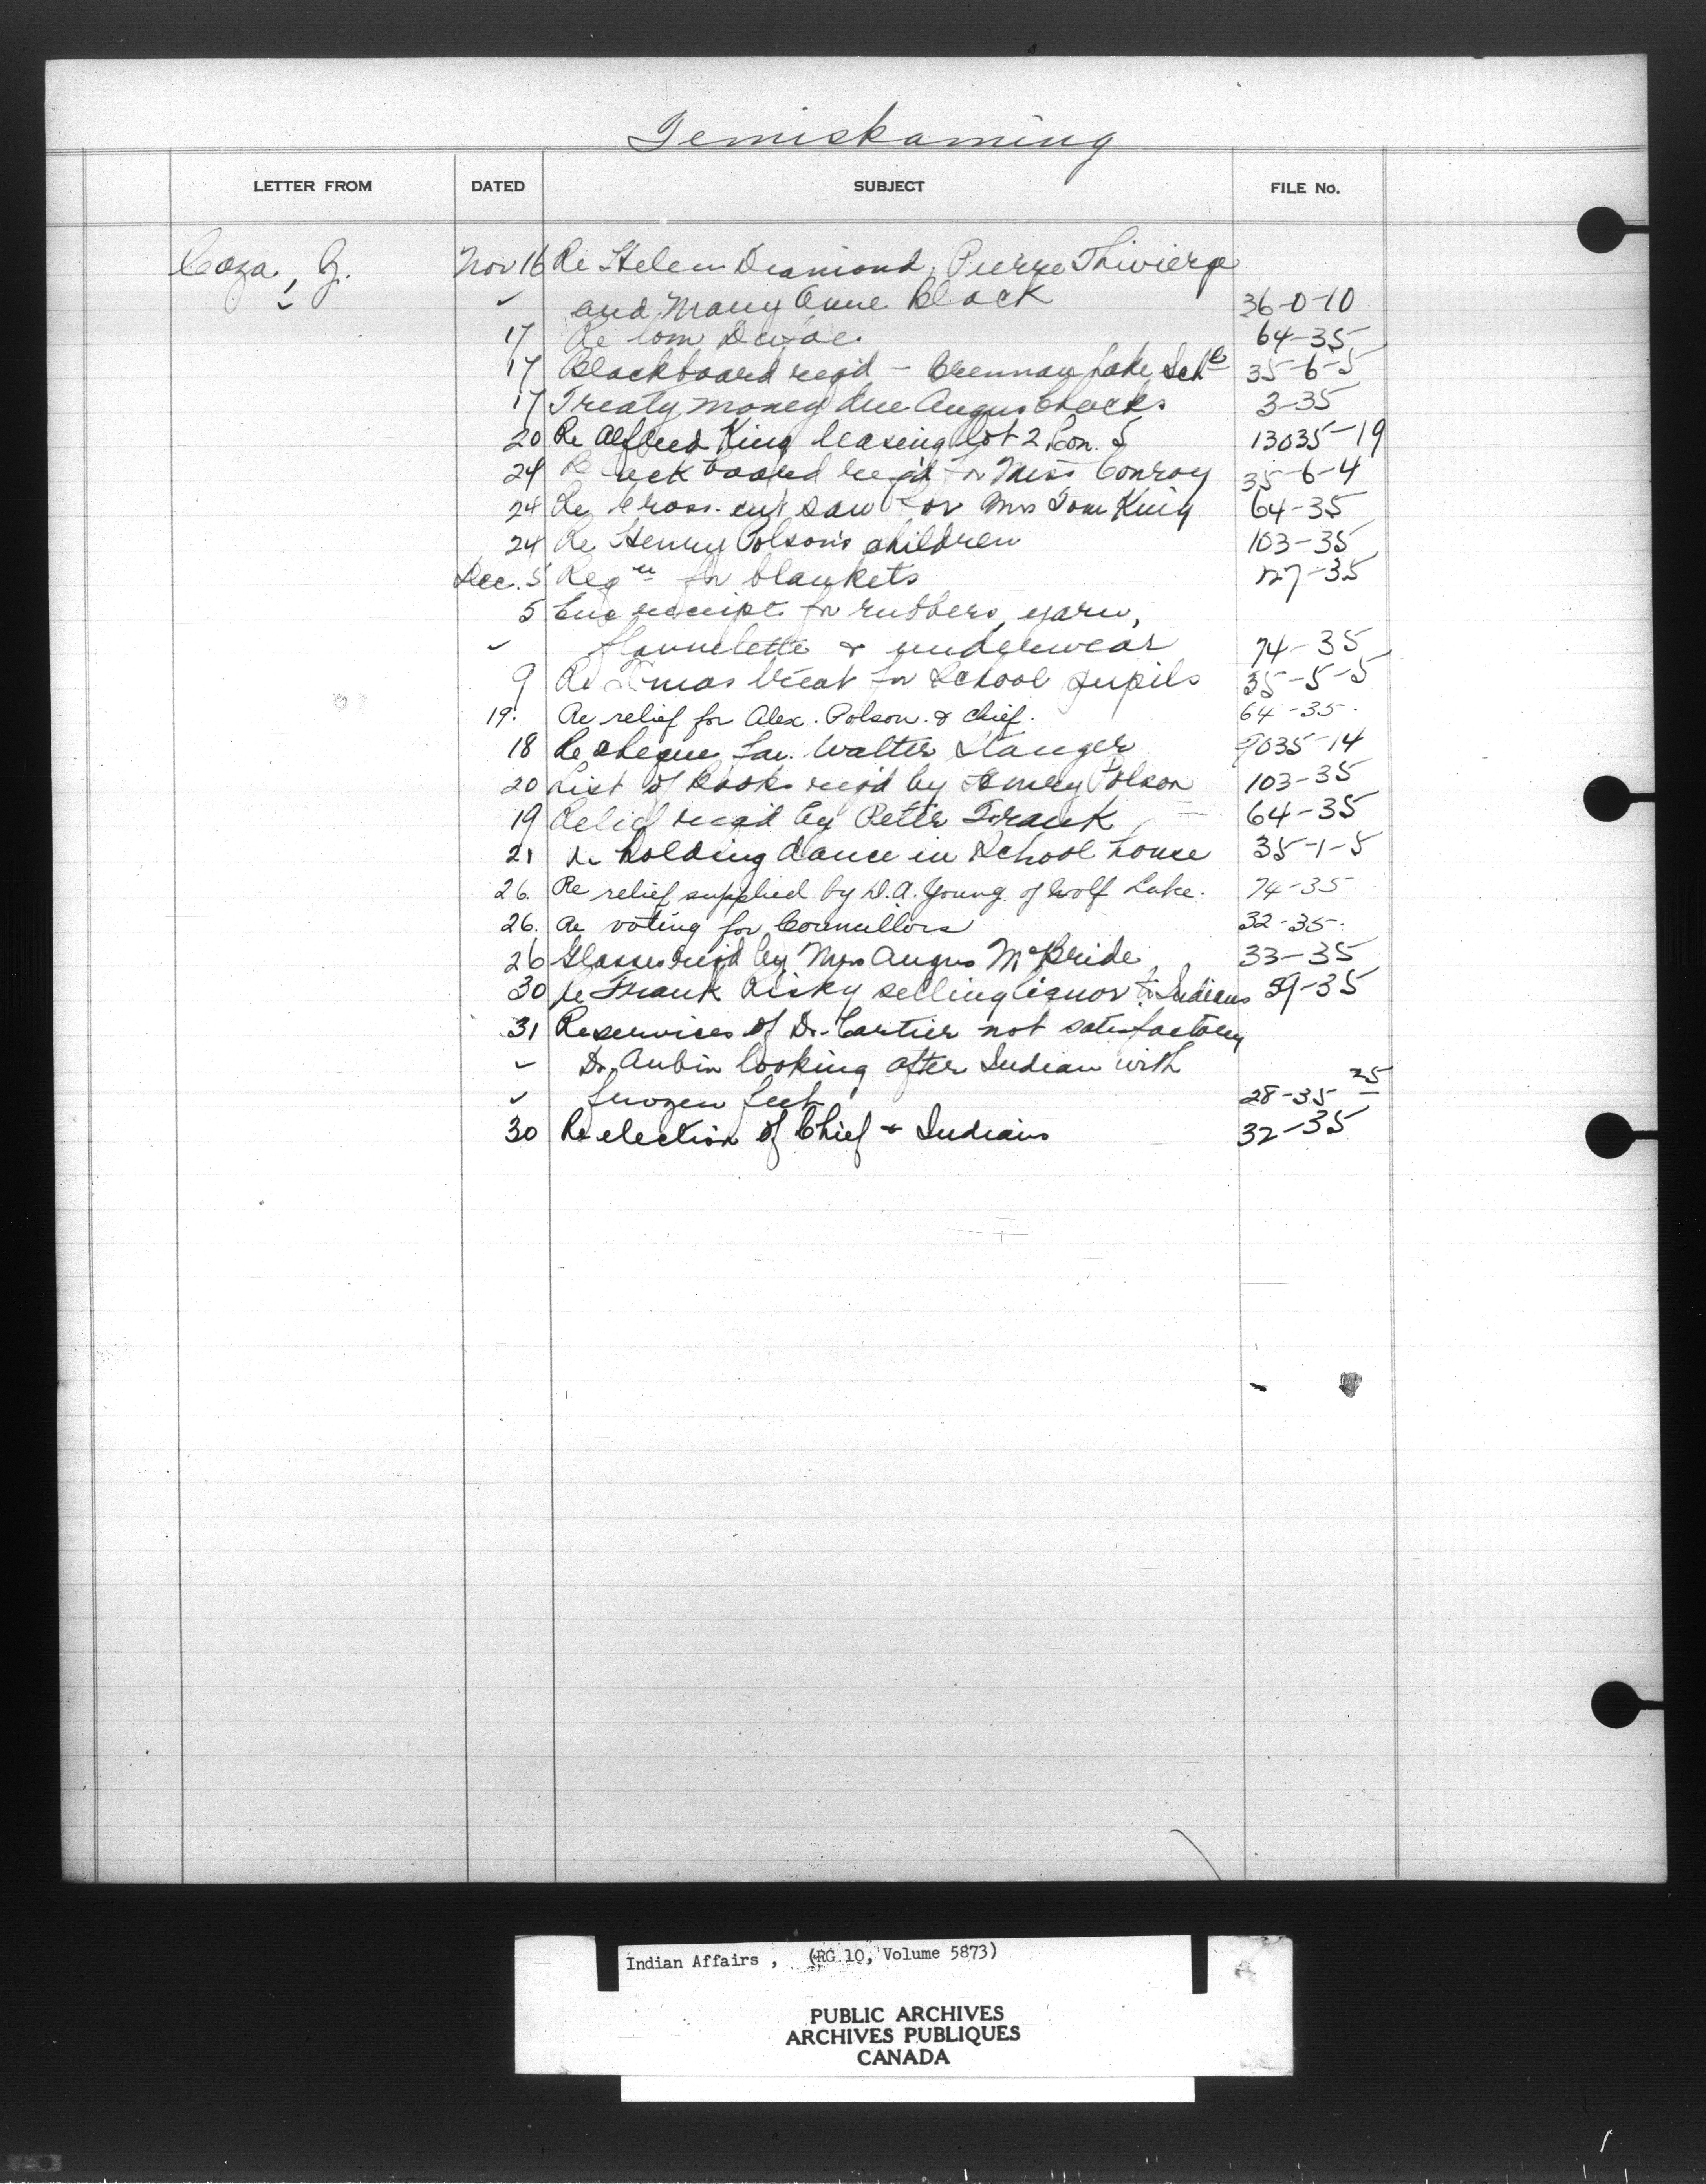 Temiskaming
LETTER FROM DATED SUBJECT FILE No.
Caza, Z. Nov 16 Re Helen Diamond, Pierre Thivierge
✓ ✓ and Mary Anne Black 36-0-10
17 Re Tom 64-35
17 Blackboard req'd - Brennan Lake Schl 35-6-5
17 Treaty money due Angus Chocks 3-35
20 Re Alfred King leasing lot 2 Con. 5 13035-19
24 Black board req'd for Miss Conroy 35-6-4
24 Re Cross-cut saw for Mrs Tom King 64-35
24 Re Henry Polson's children 103-35
Dec. 5 Reqn for blankets 127-35
5 Enc receipt for rubbers, yarn,
✓ flannelette & underwear 74-35
9 Re Xmas treat for School pupils 35-5-5
19. Re relief for Alex. Polson & Chief. 64-35.
18 Re cheque fav. Walter Stanger 9035-14
20 List of books req'd by Henry Polson 103-35
19 Relief req'd by Peter Frank 64-35
21 Re holding dance in School house 35-1-5
26. Re relief supplied by D.A. Young of Wolf Lake. 74-35
26. Re voting for Councillors 32-35.
26 Glasses req'd by Mrs Angus McBride 33-35
30 Re Frank Risky selling liquor to Indians 59-35
31 Re services of Dr. Cartier not satisfactory
✓ Dr. Aubin looking after Indian with
✓ frozen feet 28-35 25
30 Re election of Chief & Indians 32-35
Indian Affairs, (RG 10, Volume 5873)
PUBLIC ARCHIVES
ARCHIVES PUBLIQUES
CANADA